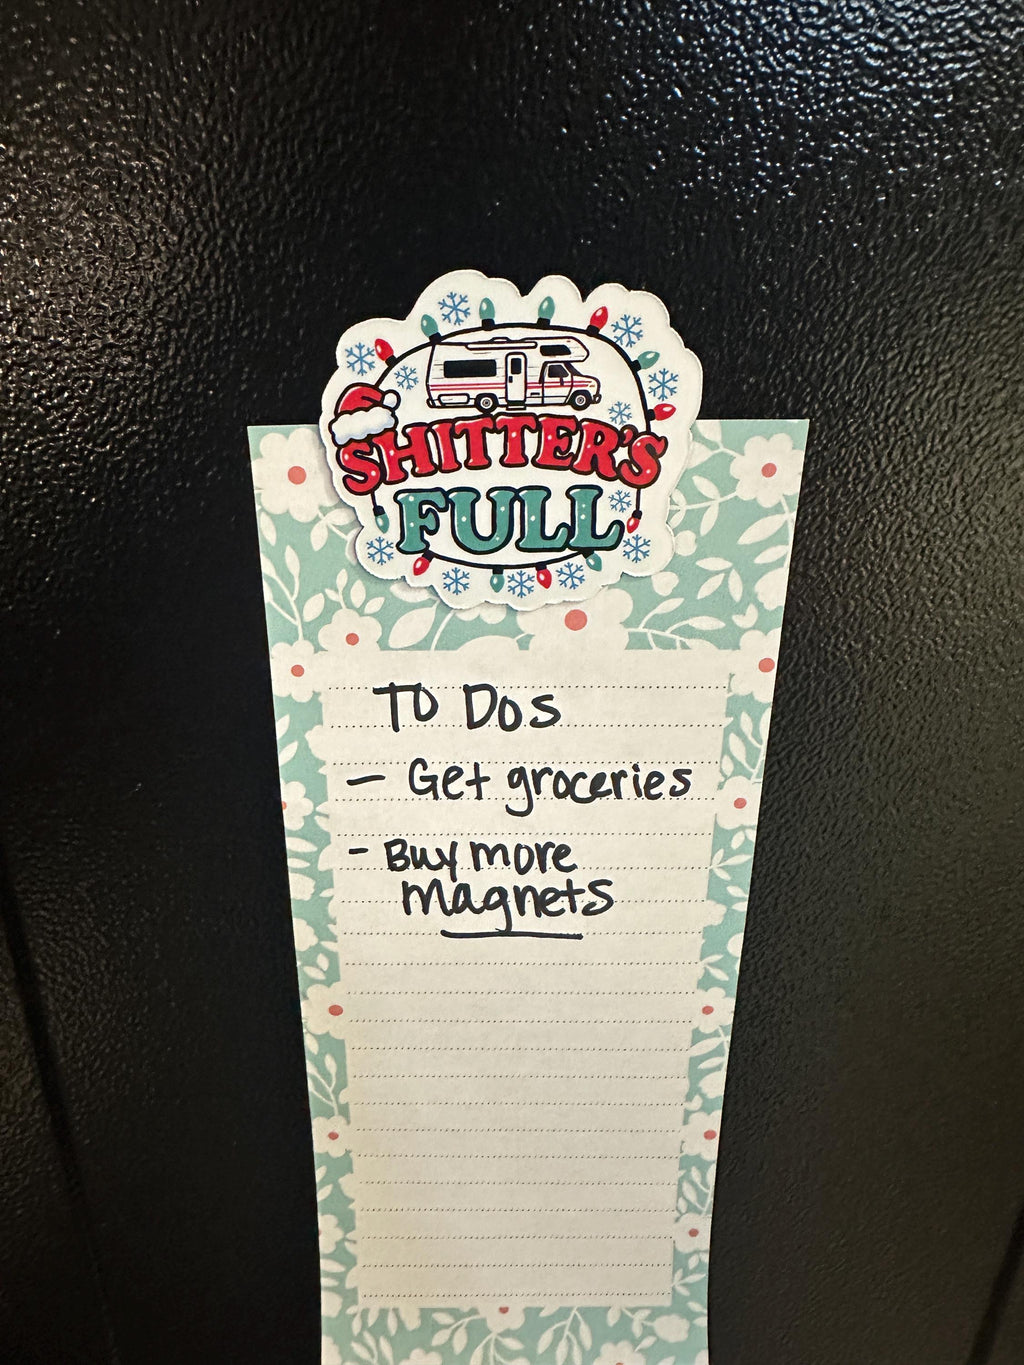 SHITTER'S
FULL
TO DOS
- Get groceries
- Buy more
magnets